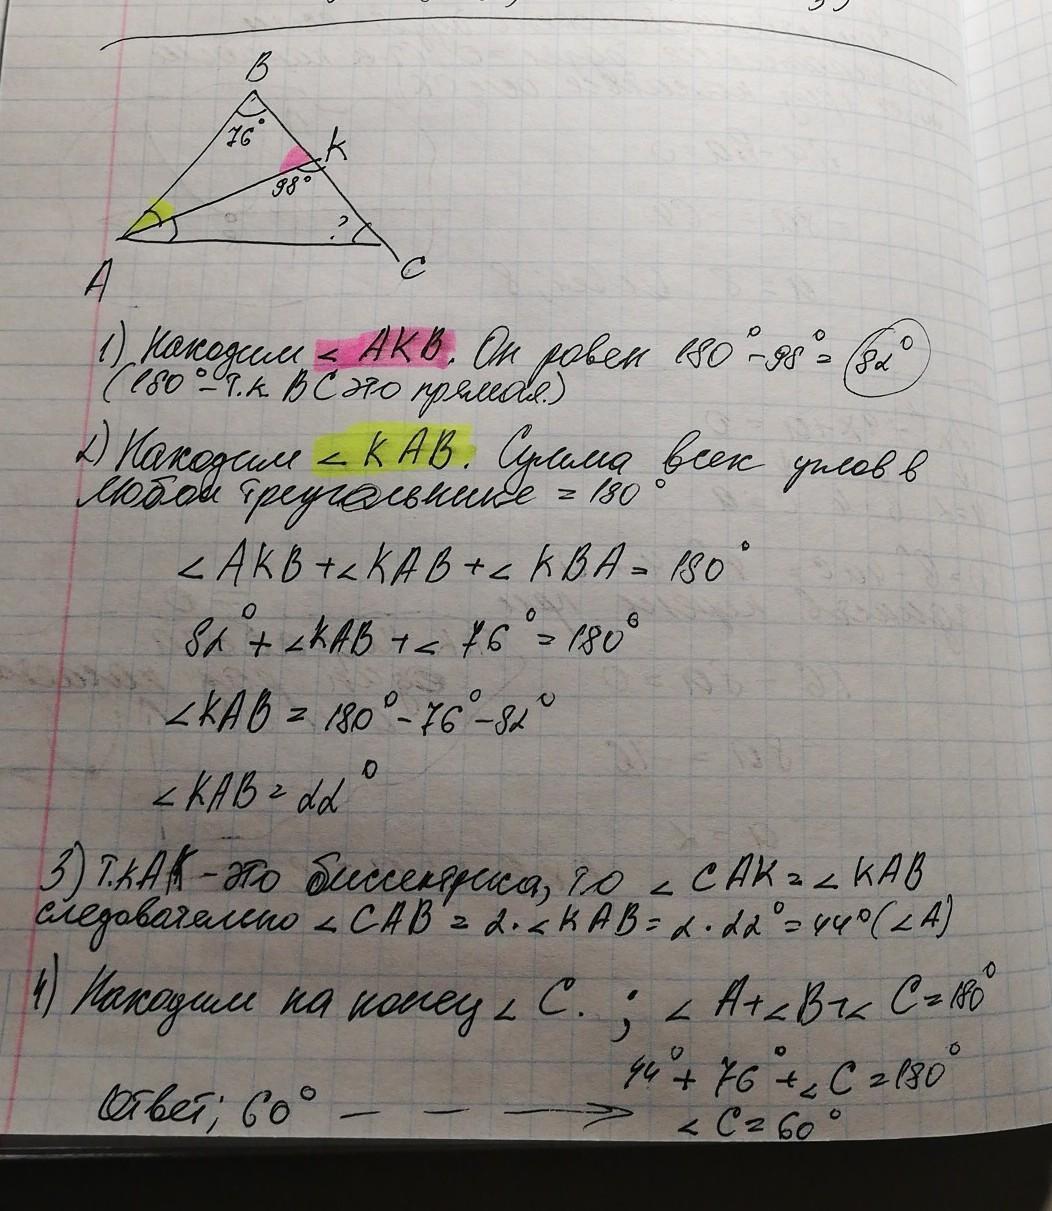 B
76°
K
98°
?
A
C
1) Находим ∠ AKB. Он ровен 180° - 98° = 82°
(180° - т.к BC это прямая.)
2) Находим ∠ KAB. Сумма всех углов в
любом треугольнике = 180°
∠ AKB + ∠ KAB + ∠ KBA = 180°
82° + ∠KAB + ∠ 76° = 180°
∠KAB = 180° - 76° - 82°
∠KAB = 22°
3) Т.к AK - это биссектриса, то ∠ CAK = ∠ KAB
следовательно ∠ CAB = 2 · ∠ KAB = 2 · 22° = 44° (∠A)
4) Находим на конец ∠ C. ; ∠ A + ∠B + ∠ C = 180°
44° + 76° + ∠ C = 180°
Ответ; 60° — — —>
∠ C = 60°